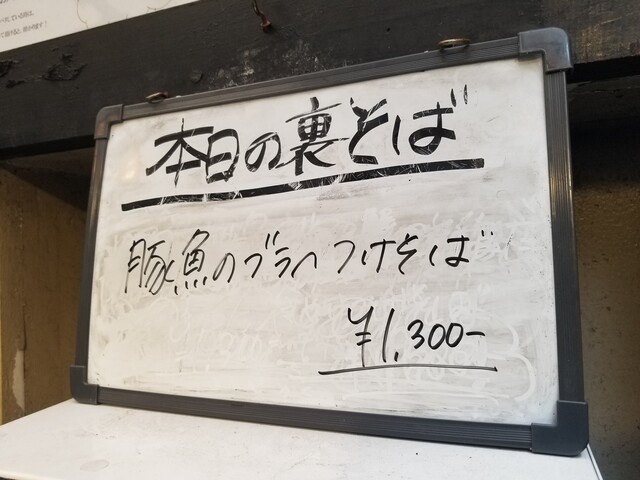 本日の裏そば
豚魚のブラヘつけそば
¥1,300-